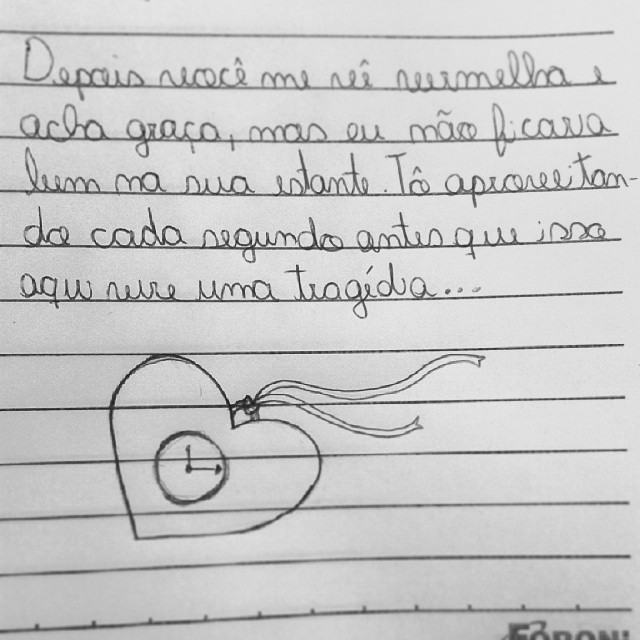 Depois você me vê vermelha e
acha graça, mas eu não ficava
bem na sua estante. Tô aproveitan-
do cada segundo antes que isso
aqui vire uma tragédia...
FORONI